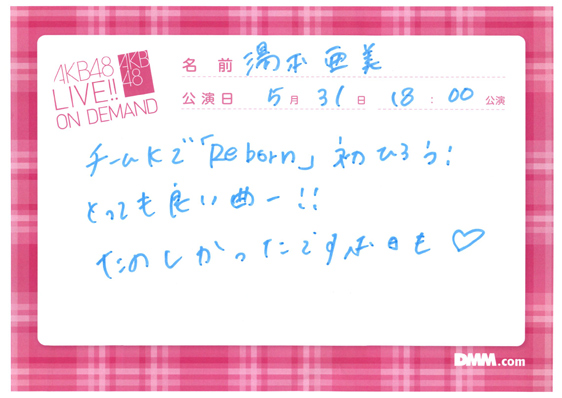 AKB48
LIVE!!
ON DEMAND
AKB
48
名前 湯本亜美
公演日 5月31日 18:00公演
チームKで「Reborn」初ひろう!
とっても良い曲ー!!
たのしかったです本日も♡
DMM.com